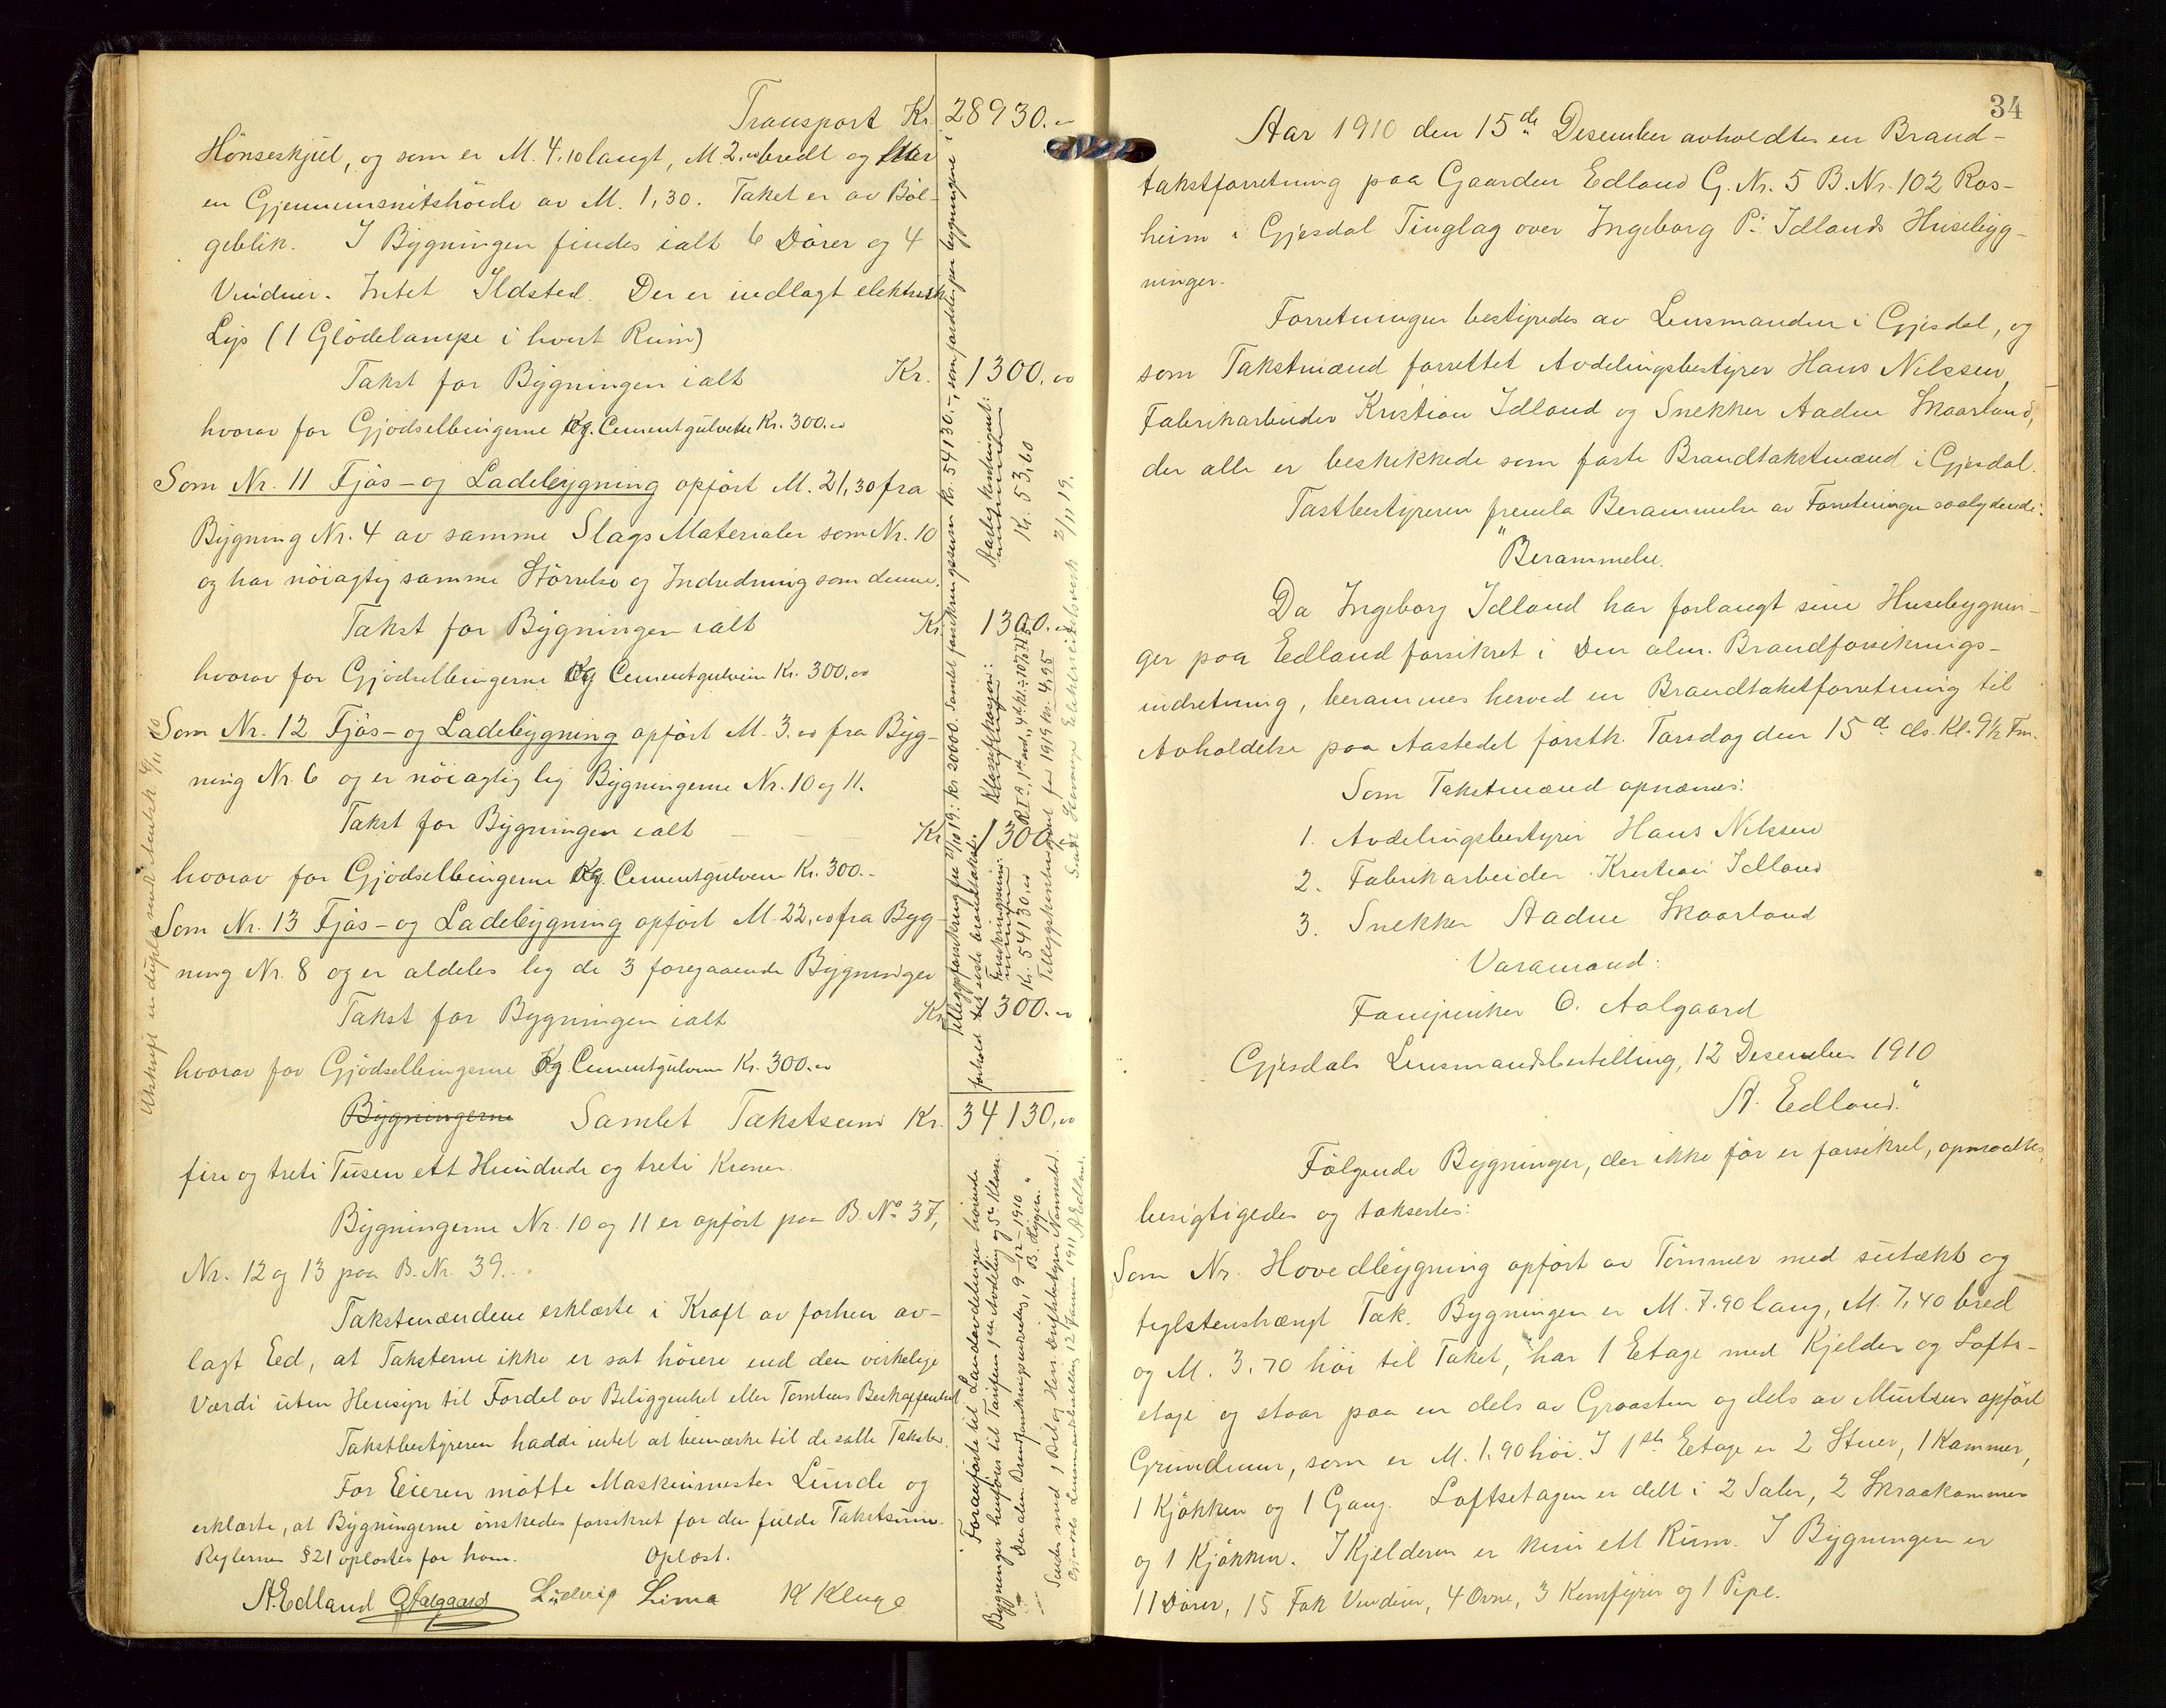 Transport Kr. 28930.„
Hönseskjul, og som er M. 4.10 langt, M. 2.00 bredt og
en Gjennemsnitshöide av M. 1,30. Taket er av Böl-
geblik. I Bygningen findes ialt 6 Dörer og 4
Vinduer. Intet Ildsted. Der er indlagt elektrisk
Lys (1 Glödelampe i hvert Rum)
Takst for Bygningen ialt Kr. 1300.00
hvorav for Gjödselbingerne og Cementgulvene Kr. 300.00
Som Nr. 11 Fjös- og Ladebygning opfört M. 21,30 fra
Bygning Nr. 4 av samme Slags Materialer som Nr. 10
og har nöiagtig samme Störrelse og Indredning som denne.
Takst for Bygningen ialt Kr. 1300.00
hvorav for Gjödselbingerne og Cementgulvene Kr. 300.00
Som Nr. 12 Fjös- og Ladebygning opfört M. 3.00 fra Byg-
ning Nr. 6 og er nöiagtig lig Bygningerne Nr. 10 og 11.
Takst for Bygningen ialt Kr. 1300.
hvorav for Gjödselbingerne og Cementgulvene Kr. 300.-
Som Nr. 13 Fjös- og Ladebygning opfört M. 22.00 fra Byg-
ning Nr. 8 og er aldeles lig de 3 foregaaende Bygninger
Takst for Bygningen ialt Kr. 1300.„
hvorav for Gjödselbingerne og Cementgulvene Kr. 300.00
Bygningerne Samlet Takstsum Kr. 34130.00
fire og treti Tusen ett Hundrede og treti Kroner.
Bygningerne Nr. 10 og 11 er opfört paa B. No 37,
Nr. 12 og 13 paa B. Nr. 39.
Takstmændene erklærte i Kraft av forhen av-
lagt Eed, at Taksterne ikke er sat höiere end den virkelige
Værdi uten Hensyn til Fordel av Beliggenhet eller Tomtens Beskaffenhet.
Takstbestyreren hadde intet at bemærke til de satte Takster.
For Eieren mötte Maskinmester Lunde og
erklærte, at Bygningerne önskedes forsikret for den fulde Takstsum.
Reglernes § 21 oplæstes for ham. Oplæst.
A. Edland O Aalgaard Ludvig Lima K Kluge
Utskrift in duplo sendt
Tilleggsforsikring fra 21/10 19: kr 20000. Samlet forsikringssum kr. 54130.-, som fordeles per bygningene i
forhold til siste branntakst.
Forsikringssum:
Kr. 54130.00
Klassifikasjon:
Aarlig kontingent:
Kr. 53,60
Tilleggskontingent for 1919 kr. 4,95
2/11 19.
Foranförte til Landavdelingen hörende
Bygninger henföres til Tariffens 1ste Avdeling og 5te Klasse
Den alm. Brandforsikringsindretning, 9-12-1910
Gjesdals Lensmandsbestilling 12 Januar 1911 A Edland.
34
Aar 1910 den 15de Desember avholdtes en Brand-
takstforretning paa Gaarden Edland G. Nr. 5 B. Nr. 102 Ros-
heim i Gjesdal Tinglag over Ingeborg P. Idlands Husebygg-
ninger.
Forretningen bestyredes av Lensmanden i Gjesdal, og
som Takstmænd forrettet Avdelingsbestyrer Hans Nilssen,
Fabrikarbeider Kristian Idland og Snekker Aadne Skaarland,
der alle er beskikkede som faste Brandtakstmænd i Gjesdal.
Tastbestyreren fremla Berammelse av Forretningen saalydende:
"Berammelse.
Da Ingeborg Idland har forlangt sine Husebygnin-
ger paa Edland forsikret i Den alm. Brandforsikrings-
indretning, berammes herved en Brandtakstforretning til
Avholdelse paa Aastedet förstk. Torsdag den 15de ds. Kl. 9½ Fm.
Som Takstmænd opnævnes:
1. Avdelingsbestyrer Hans Nilssen
2. Fabrikarbeider Kristian Idland
3. Snekker Aadne Skaarland
Varamænd:
O. Aalgaard
Gjesdals Lensmandsbestilling, 12 Desember 1910
A. Edland."
Fölgende Bygninger, der ikke för er forsikret, opmaaltes,
besigtigedes og takseredes:
Som Nr. Hovedbygning opfört av Tömmer med sutækt og
teglstenshængt Tak. Bygningen er M. 7.90 lang, M. 7,40 bred
og M. 3.70 höi til Taket, har 1 Etage med Kjelder og Lofts-
etage og staar paa en dels av Graasten og dels av Mursten opfört
Grundmur, som er M. 1.90 höi. I 1ste Etage er 2 Stuer, 1 Kammer,
1 Kjökken og 1 Gang. Loftsetagen er delt i 2 Saler, 2 Skraakammer
og 1 Kjökken. I Kjelderen er kun ett Rum. I Bygningen er
11 Dörer, 15 Fak Vinduer, 4 Ovne, 3 Komfyrer og 1 Pipe.